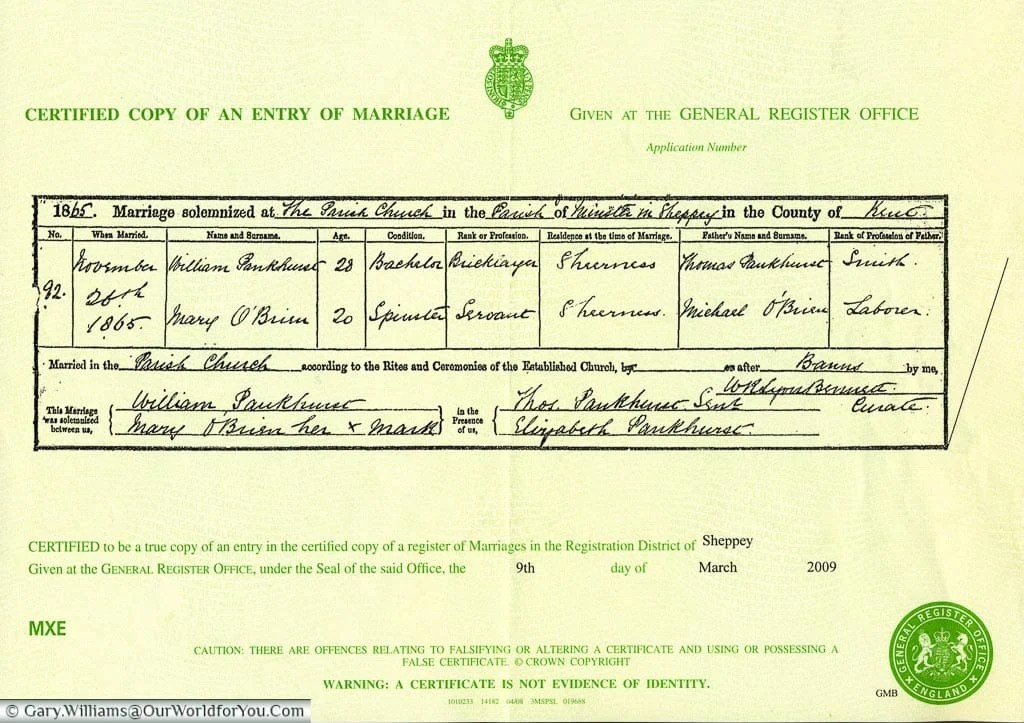 CERTIFIED COPY OF AN ENTRY OF MARRIAGE
GIVEN AT THE GENERAL REGISTER OFFICE
Application Number
1865. Marriage solemnized at The Parish Church in the Parish of Minster in Sheppey in the County of Kent.
No. When Married. Name and Surname. Age. Condition. Rank or Profession. Residence at the time of Marriage. Father's Name and Surname. Rank of Profession of Father.
November William Pankhurst 23 Bachelor Bricklayer Sheerness Thomas Pankhurst Smith.
92. 26th
1865. Mary O'Brien 20 Spinster Servant Sheerness. Michael O'Brien Laborer.
Married in the Parish Church according to the Rites and Ceremonies of the Established Church, by or after Banns by me,
William Pankhurst Thos. Pankhurst Bennett.
This Marriage was solemnized between us, in the Presence of us, Curate.
Mary O'Brien her x Mark Elizabeth Pankhurst.
CERTIFIED to be a true copy of an entry in the certified copy of a register of Marriages in the Registration District of Sheppey
Given at the GENERAL REGISTER OFFICE, under the Seal of the said Office, the 9th day of March 2009
MXE
CAUTION: THERE ARE OFFENCES RELATING TO FALSIFYING OR ALTERING A CERTIFICATE AND USING OR POSSESSING A
FALSE CERTIFICATE. © CROWN COPYRIGHT
WARNING: A CERTIFICATE IS NOT EVIDENCE OF IDENTITY.
1010233 14182 04/08 3MSPSL 019688
GMB
GENERAL REGISTER OFFICE
ENGLAND
© Gary.Williams@OurWorldforYou.Com